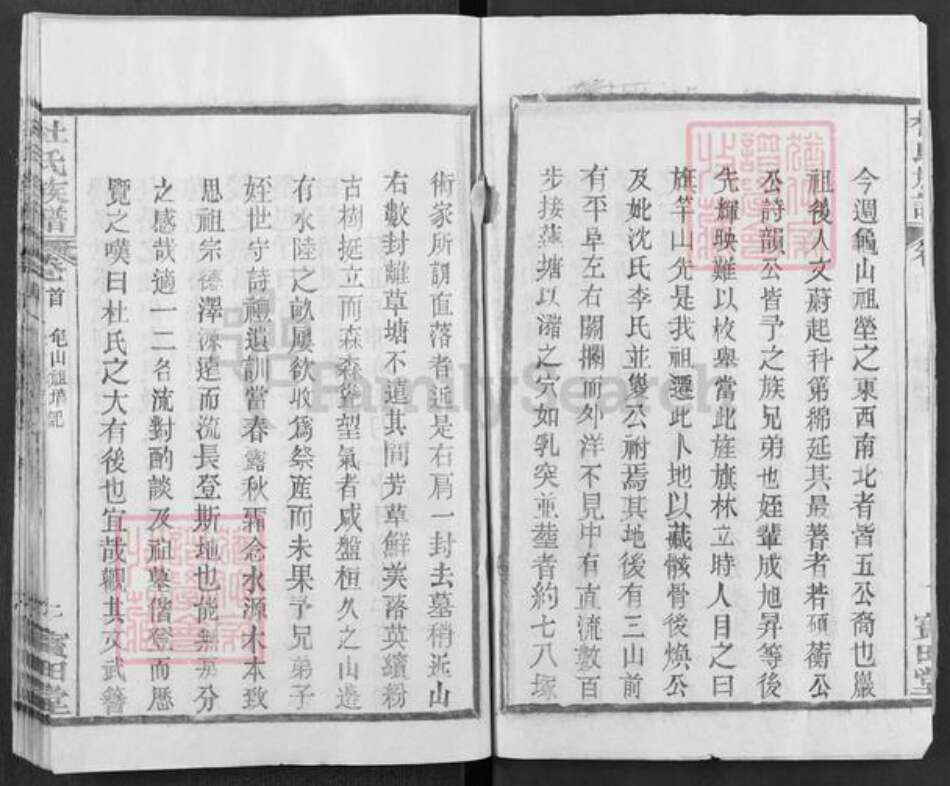 今週龜山祖塋之東西南北者皆五公裔也巖
祖後人文蔚起科第綿延其最著者若碩蘅公
公詩韻公皆予之族兄弟也姪輩成旭昇等後
先輝映難以枚舉當此旌旗林立時人目之曰
旗竿山先是我祖遷此卜地以藏骸骨後煥公
及妣沈氏李氏並夑公祔焉其地後有三山前
有平阜左右關攔而外洋不見中有直流數百
步接蓮塘以瀦之穴如乳突並塟者約七八塚
術家所謂直落者近是右肩一封去墓稍近山
右數封離草塘不遠其間芳草鮮美落英繽粉
古樹挺立而森森聳望氣者咸盤桓久之山邊
有水陸之畝屢欲收爲祭產而未果予兄弟子
姪世守詩禮遺訓當春露秋霜念水源木本致
思祖宗德澤深遠而流長登斯地也能無
分
之感哉適一二名流對酌談及祖墓偕登而歷
覽之嘆曰杜氏之大有後也宜哉觀其文武簪
杜氏族譜
卷首
龜山祖塋記
二
寳田堂
寳田堂
FamilySearch